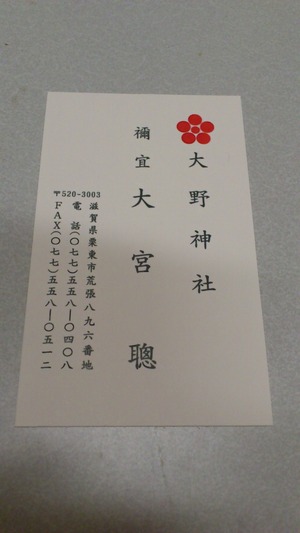 大野神社
禰宜 大宮 聰
滋賀県栗東市荒張八九六番地
〒520-3003
電話(〇七七)五五八―〇四〇八
FAX(〇七七)五五八―〇五一二